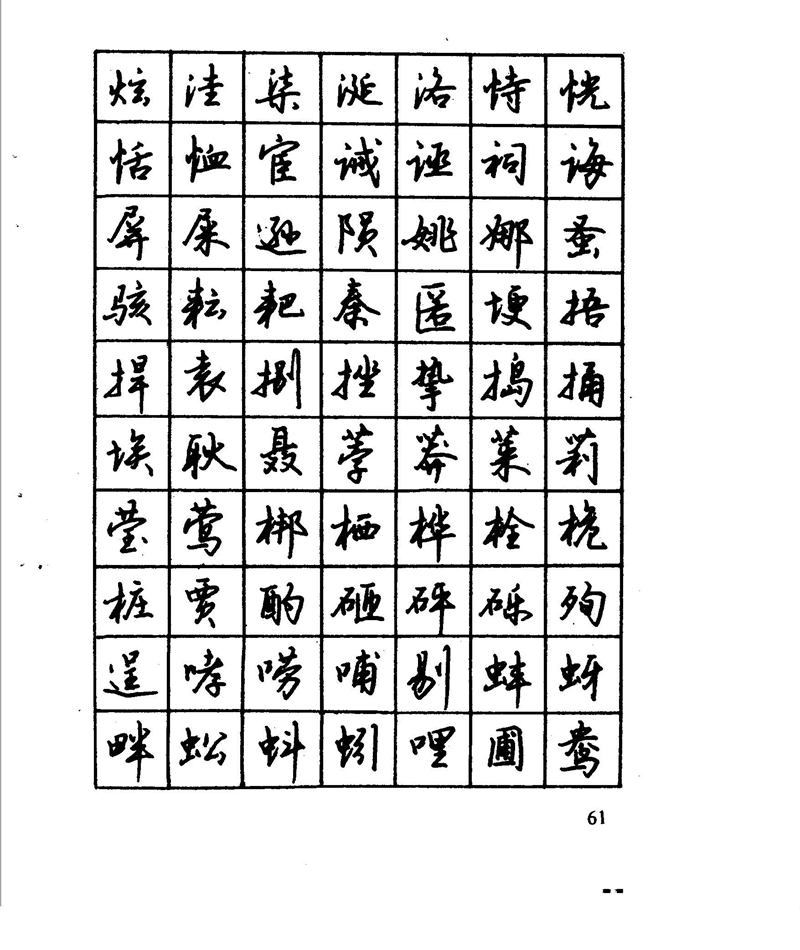 炫洼柒涎洛恃恍
恬恤宦诫诬祠诲
屏屎逊陨姚娜蚤
骇耘耙秦匿埂捂
捍袁捌挫挚捣捅
埃耿聂荸莽莱莉
莹莺梆栖桦栓桅
桩贾酌砸砰砾殉
逞哮唠哺剔蚌蚜
畔蚣蚪蚓哩圃鸯
61